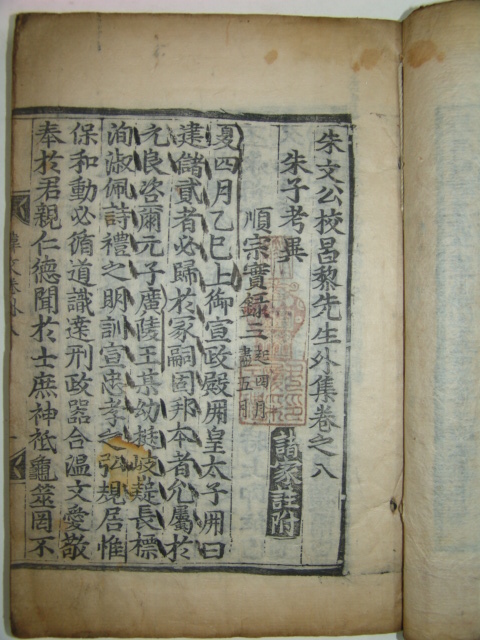 朱文公校昌黎先生外集卷之八
朱子考異
諸家註附
順宗實錄三起四月盡五月
夏四月乙巳上御宣政殿冊皇太子冊曰
建儲貳者必歸於冢嗣固邦本者允屬於
元良咨爾元子廣陵王某幼挺岐嶷長標
洵淑佩詩禮之明訓宣忠孝之弘規居惟
保和動必循道識達刑政器合溫文愛敬
奉於君親仁德聞於士庶神祇龜筮罔不
韋文卷外八